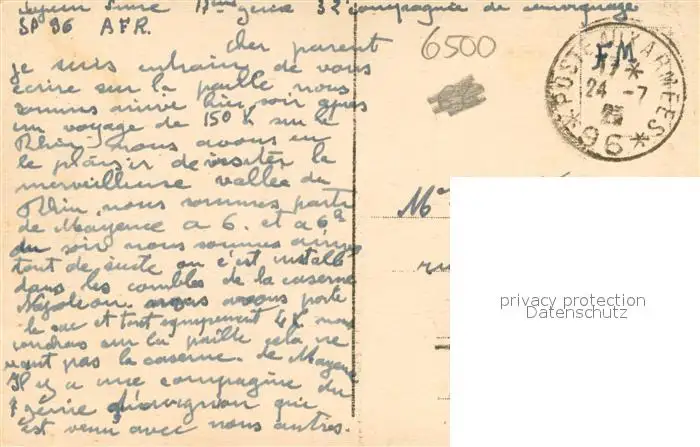 Sapeur 11eme genie 32 compagnie de remorquage
SP 96 AFR.
cher parent
je suis entrain de vous
ecrire sur la paille nous
sommes arrivé hier soir apres
un voyage de 150 K sur le
Rhin nous avons eu
le plaisir de visiter la
merveilleuse vallée du
Rhin nous sommes parti
de Mayence a 6. et a 6h
du soir nous sommes arrivé
tout de suite on c'est installé
dans les combles de la caserne
Napoleon. nous avons porté
le sac et tout equipement 4 K nous
couchons sur la paille cela ne
vaut pas la caserne de Mayence
Il y a une compagnie du
7 genie d'avignon qui
est venu avec nous autres.
6500
FM
POSTE AUX ARMEES
24 -7
*96*
Me
ru
privacy protection
Datenschutz